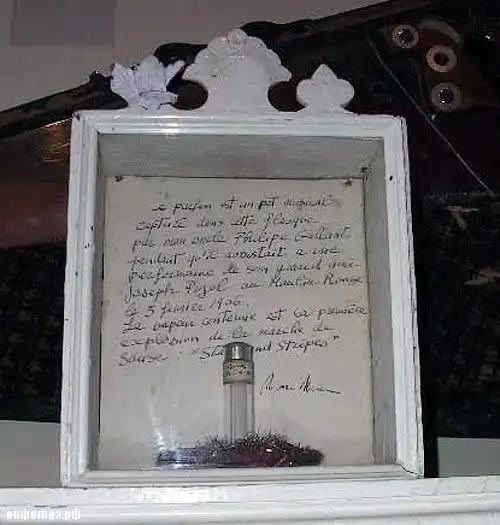 Ce parfum est un pet musical
capturé dans cette flasque
par mon oncle Philipe Gallant
pendant qu'il assistait a une
performance de son grand ami
Joseph Pujol au Moulin-Rouge
le 5 fevrier 1906.
La vapeur contenue est la première
explosion de la marche de
Sousa: "Sta and Stripes"
инфоглаз.рф